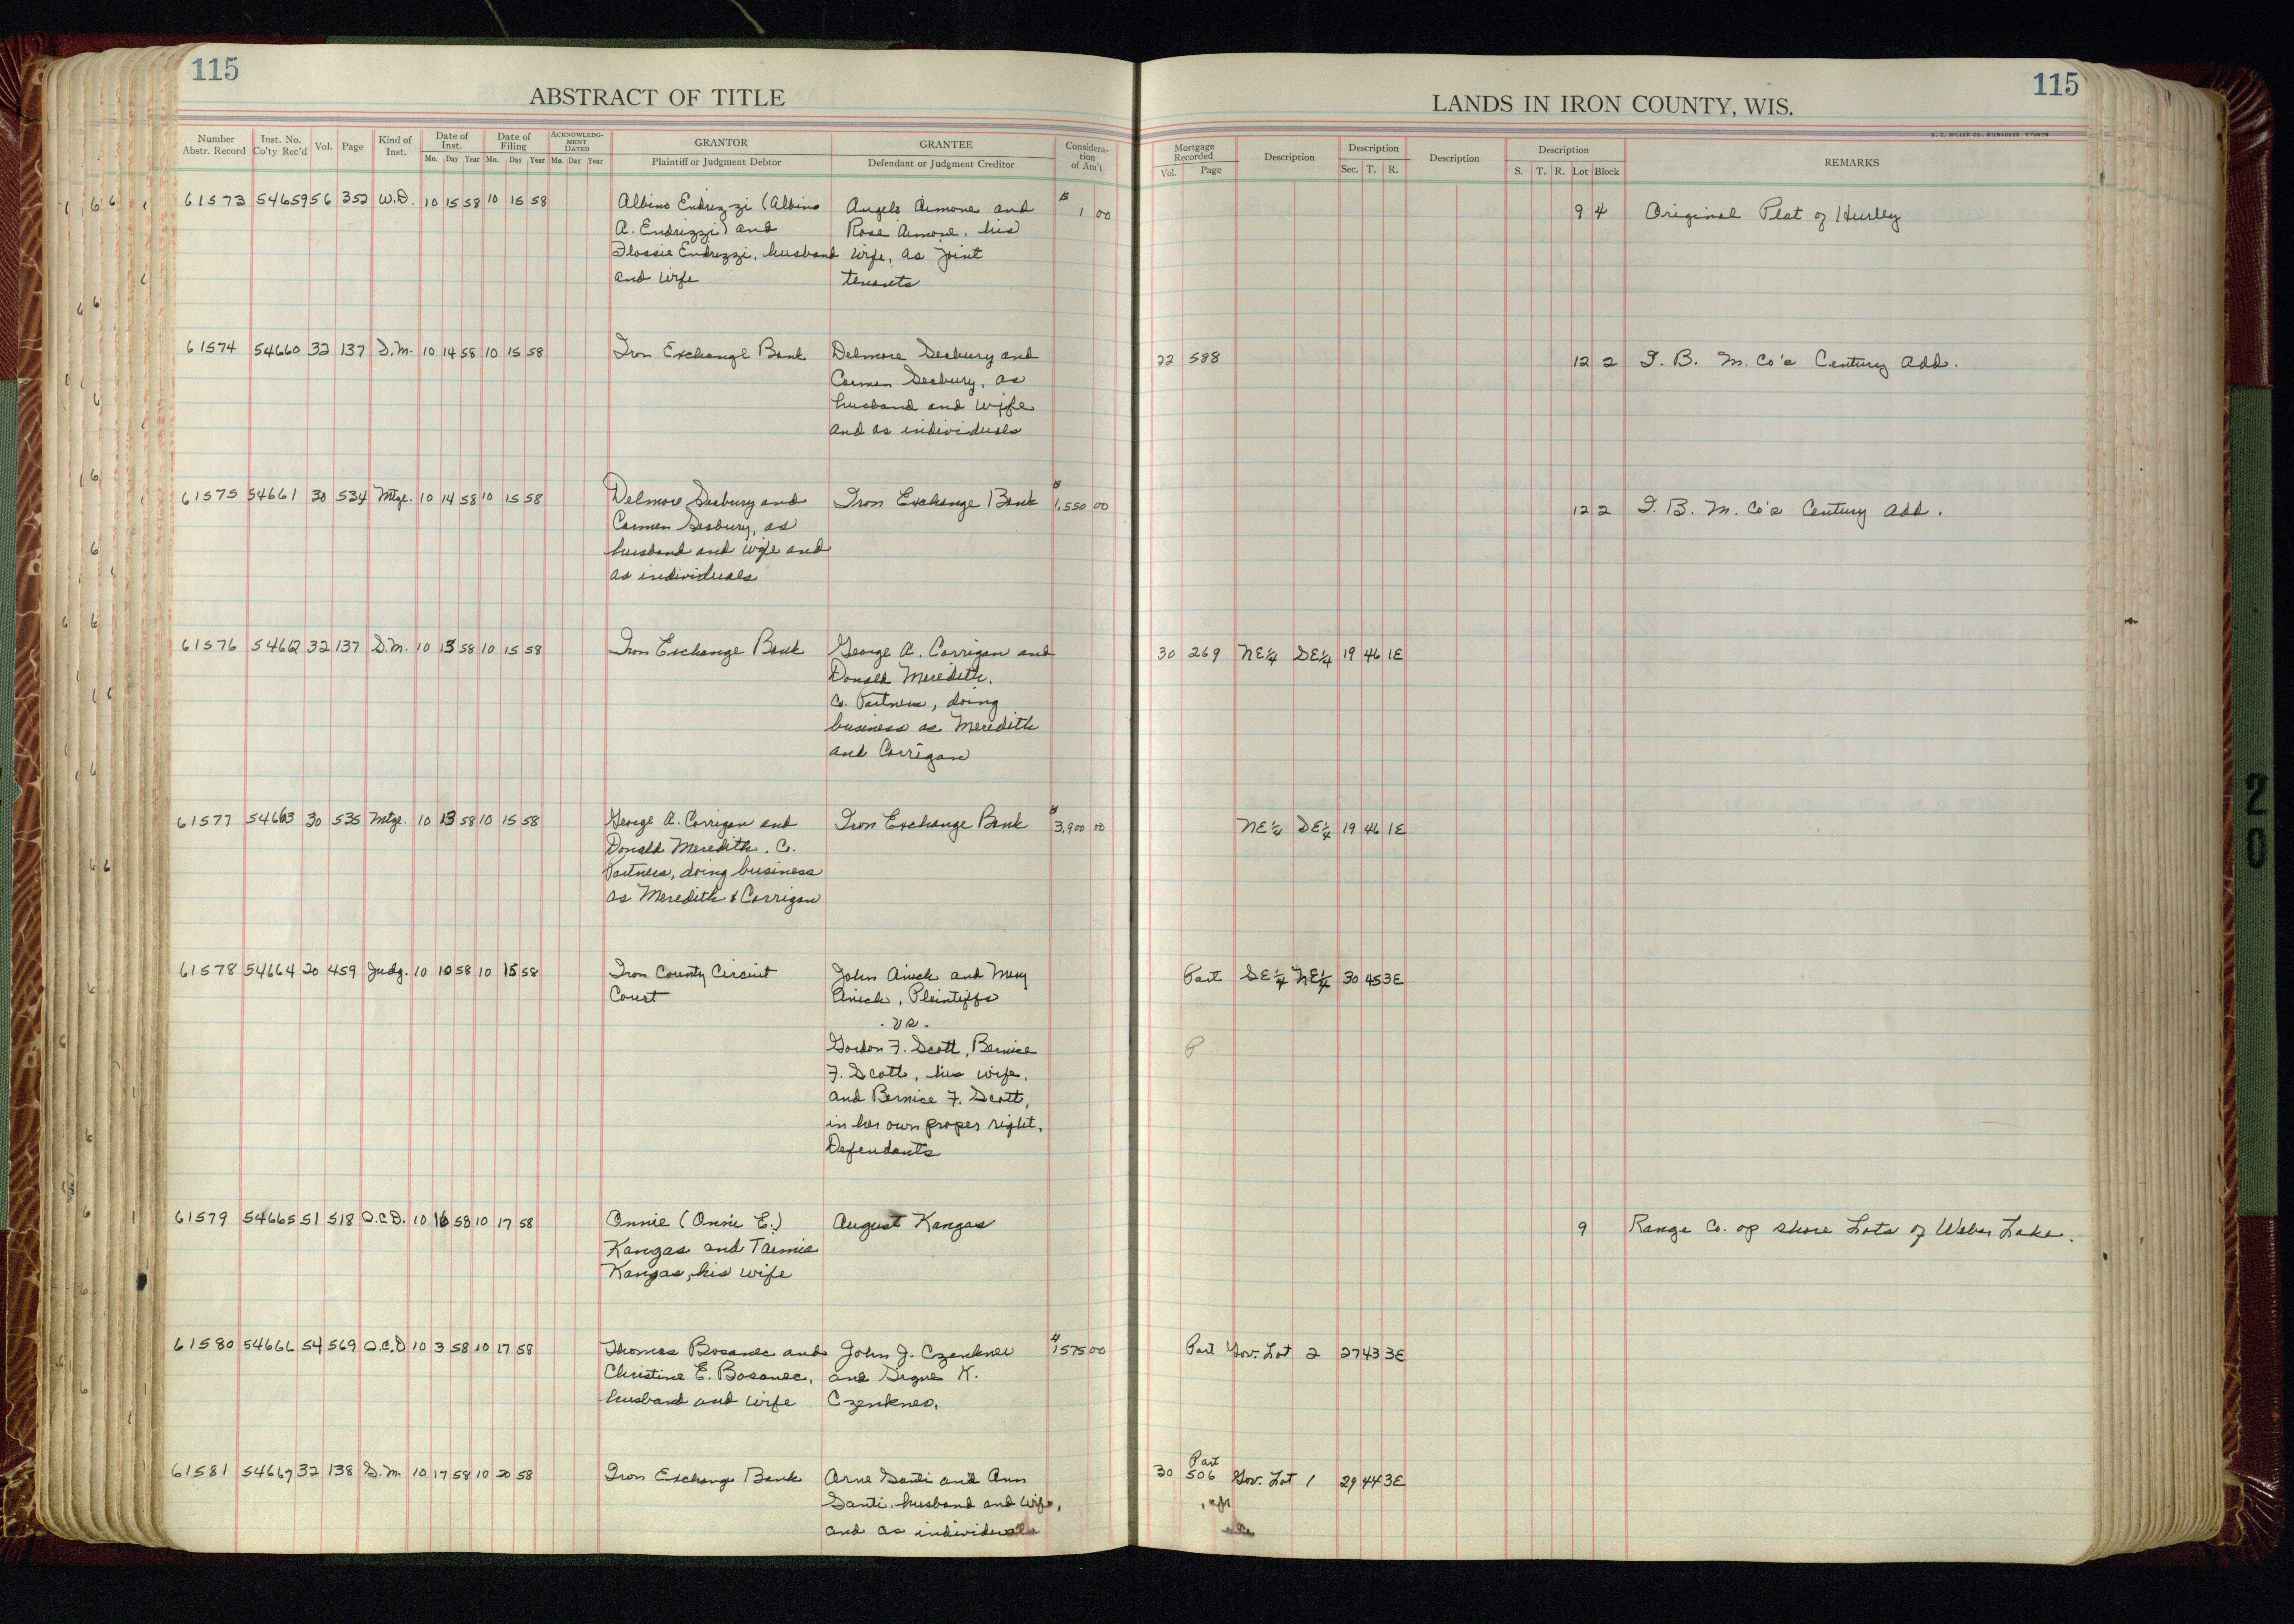 115
ABSTRACT OF TITLE
Number Abstr. Record Inst. No. Co'ty Rec'd Vol. Page Kind of Inst. Date of Inst. Mo. Day Year Date of Filing Mo. Day Year ACKNOWLEDGMENT DATED Mo. Day Year GRANTOR Plaintiff or Judgment Debtor GRANTEE Defendant or Judgment Creditor Consideration of Am't
61573 54659 56 352 W.D. 10 15 58 10 15 58 Albino Endrizzi (Albino Angelo Aimone and $ 1 00
A. Endrizzi) and Rose Aimone, his
Flossie Endrizzi, husband wife, as joint
and wife tenants
61574 54660 32 137 S.M. 10 14 58 10 15 58 Iron Exchange Bank Delmore Seabury and
Carmen Seabury, as
husband and wife
and as individuals
61575 54661 30 534 Mtge. 10 14 58 10 15 58 Delmore Seabury and Iron Exchange Bank $ 1,550 00
Carmen Seabury, as
husband and wife and
as individuals
61576 54662 32 137 S.M. 10 13 58 10 15 58 Iron Exchange Bank George A. Corrigan and
Donald Meredith,
Co. Partners, doing
business as Meredith
and Corrigan
61577 54663 30 535 Mtge. 10 13 58 10 15 58 George A. Corrigan and Iron Exchange Bank $ 3,900 00
Donald Meredith, Co.
Partners, doing business
as Meredith & Corrigan
61578 54664 20 459 Judg. 10 10 58 10 15 58 Iron County Circuit John Anich and Mary
Court Anich, Plaintiffs
-vs-
Gordon F. Scott, Bernice
F. Scott, his wife,
and Bernice F. Scott,
in her own proper right,
Defendants
61579 54665 51 518 Q.C.D. 10 16 58 10 17 58 Onnie (Onnie E.) August Kangas
Kangas and Taimie
Kangas, his wife
61580 54666 54 569 Q.C.D 10 3 58 10 17 58 Thomas Bosanec and John J. Czenkner $ 1575 00
Christine E. Bosanec, and Signe K.
husband and wife Czenkner,
61581 54667 32 138 S.M. 10 17 58 10 20 58 Iron Exchange Bank Arne Santi and Ann
Santi, husband and wife,
and as individuals
115
LANDS IN IRON COUNTY, WIS.
H. C. MILLER CO., MILWAUKEE
Mortgage Recorded Vol. Page Description Description Sec. T. R. Description Description S. T. R. Lot Block REMARKS
9 4 Original Plat of Hurley
22 588 12 2 I. B. M. Co's Century Add.
12 2 I. B. M. Co's Century Add.
30 269 NE¼ SE¼ 19 46 1E
NE¼ SE¼ 19 46 1E
Part SE¼ NE¼ 30 45 3E
P
9 Range Co. op shore Lots of Weber Lake.
Part Gov. Lot 2 27 43 3E
Part
30 506 Gov. Lot 1 29 44 3E
20